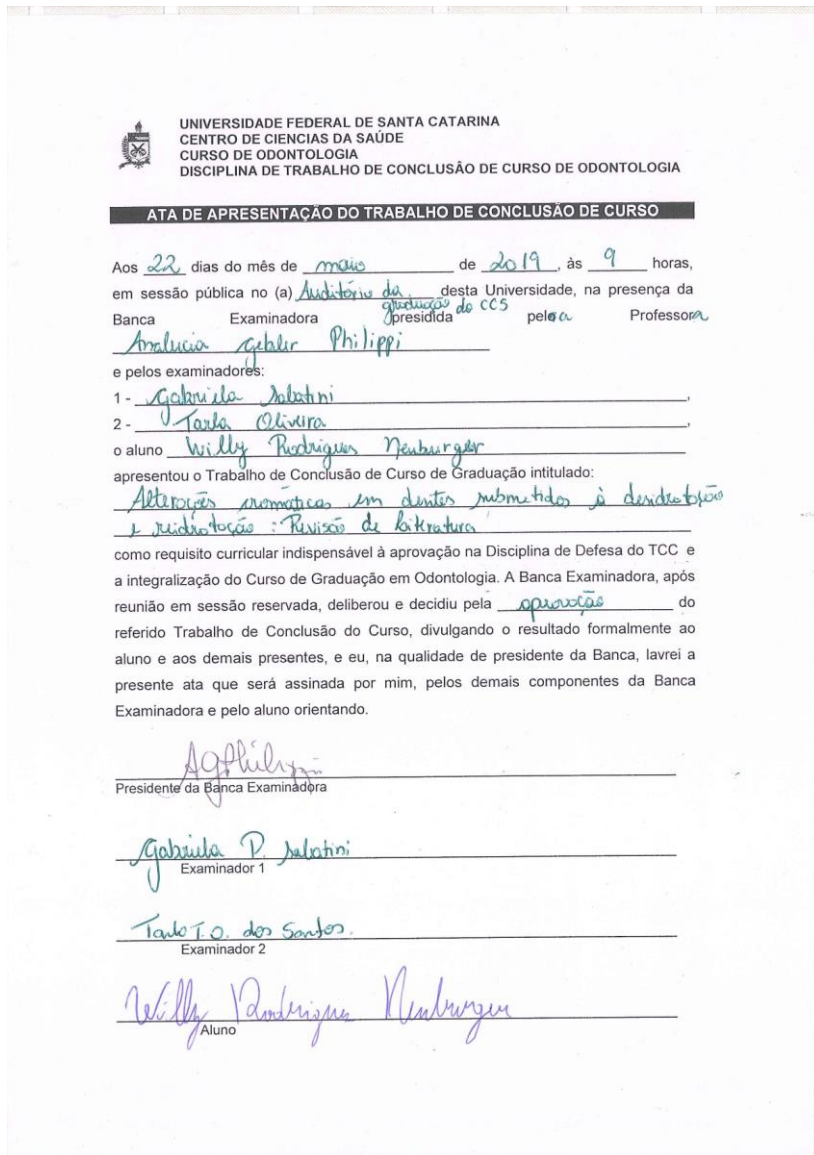 UNIVERSIDADE FEDERAL DE SANTA CATARINA
CENTRO DE CIENCIAS DA SAÚDE
CURSO DE ODONTOLOGIA
DISCIPLINA DE TRABALHO DE CONCLUSÃO DE CURSO DE ODONTOLOGIA
ATA DE APRESENTAÇÃO DO TRABALHO DE CONCLUSÃO DE CURSO
Aos 22 dias do mês de maio de 2019, às 9 horas,
em sessão pública no (a) Auditório da desta Universidade, na presença da
graduação do CCS
Banca Examinadora presidida pela Professora
Analucia Gebler Philippi
e pelos examinadores:
1 - Gabriela Sabatini,
2 - Tarla Oliveira,
o aluno Willy Rodrigues Neuburger
apresentou o Trabalho de Conclusão de Curso de Graduação intitulado:
Alterações cromáticas em dentes submetidos à desidratação
e reidratação : Revisão de literatura
como requisito curricular indispensável à aprovação na Disciplina de Defesa do TCC e
a integralização do Curso de Graduação em Odontologia. A Banca Examinadora, após
reunião em sessão reservada, deliberou e decidiu pela aprovação do
referido Trabalho de Conclusão do Curso, divulgando o resultado formalmente ao
aluno e aos demais presentes, e eu, na qualidade de presidente da Banca, lavrei a
presente ata que será assinada por mim, pelos demais componentes da Banca
Examinadora e pelo aluno orientando.
AGPhilippi
Presidente da Banca Examinadora
Gabriela P. Sabatini
Examinador 1
Tarla T.O. dos Santos.
Examinador 2
Willy Rodrigues Neuburger
Aluno